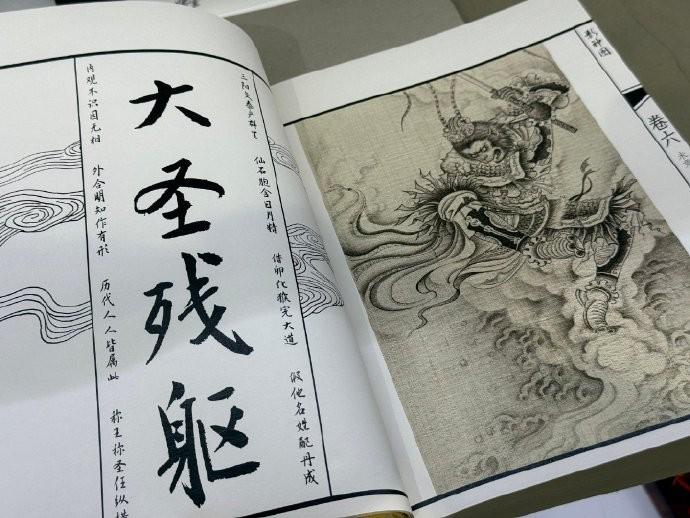 三阳交泰产群生 仙石胞含日月精 借卵化猴完大道 假他名姓配丹成
大圣残躯
内观不识因无相 外合明知作有形 历代人人皆属此 称王称圣任纵
影神图
卷六